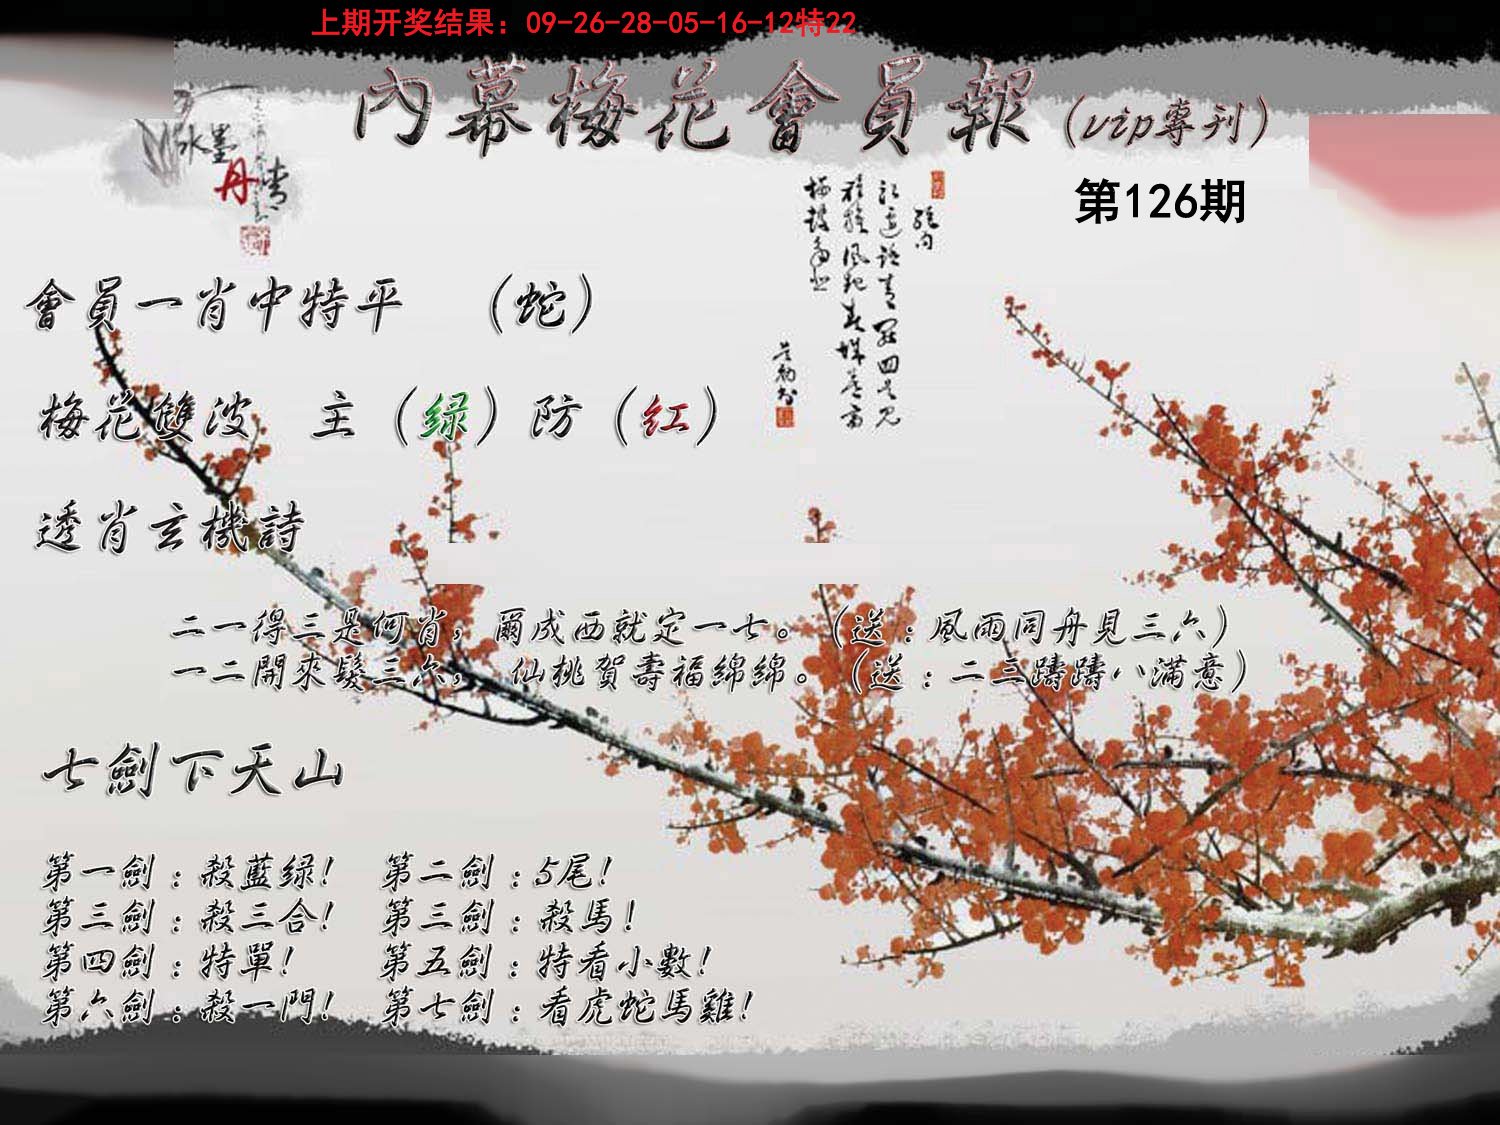 上期开奖结果：09-26-28-05-16-12特22
內幕梅花會員報（vip專刊）
第126期
水墨丹青
會員一肖中特平　（蛇）
梅花雙波　主（绿）防（红）
透肖玄機詩
二一得三是何肖，爾成西就定一七。（送：風雨同舟見三六）
一二開來髮三六，仙桃賀壽福綿綿。（送：二三躊躊八滿意）
七劍下天山
第一劍：殺藍绿！　第二劍：5尾！
第三劍：殺三合！　第三劍：殺馬！
第四劍：特單！　第五劍：特看小數！
第六劍：殺一門！　第七劍：看虎蛇馬雞！